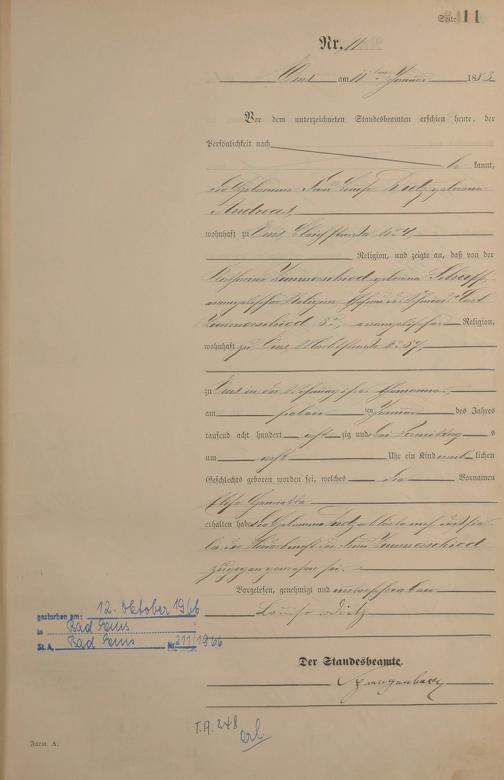 Seite 11
Nr. 11
Ems am 11ten Januar 1883
Vor dem unterzeichneten Standesbeamten erschien heute, der
Persönlichkeit nach
be kannt,
die Hebamme Frau Louise Dietz geborene
Andreas,
wohnhaft zu Ems
Religion, und zeigte an, daß von der
Zimmerschied geborene
evangelischer Religion, Ehefrau des
Zimmerschied evangelischer Religion,
wohnhaft zu Ems
zu Ems in der Wohnung ihres Ehemannes,
am sieben ten Januar des Jahres
tausend acht hundert acht zig und drei Vormittags
um acht Uhr ein Kind weib lichen
Geschlechts geboren worden sei, welches die Vornamen
erhalten habe. Die Hebamme Dietz erklärte noch, daß sie
bei der Niederkunft der Frau Zimmerschied
zugegen gewesen sei.
Vorgelesen, genehmigt und unterschrieben
Louise Dietz
Der Standesbeamte.
gestorben am: 12. Oktober 1966
in Bad Ems
St. A. Bad Ems Nr 211/1966
T.A. 248
Form. A.